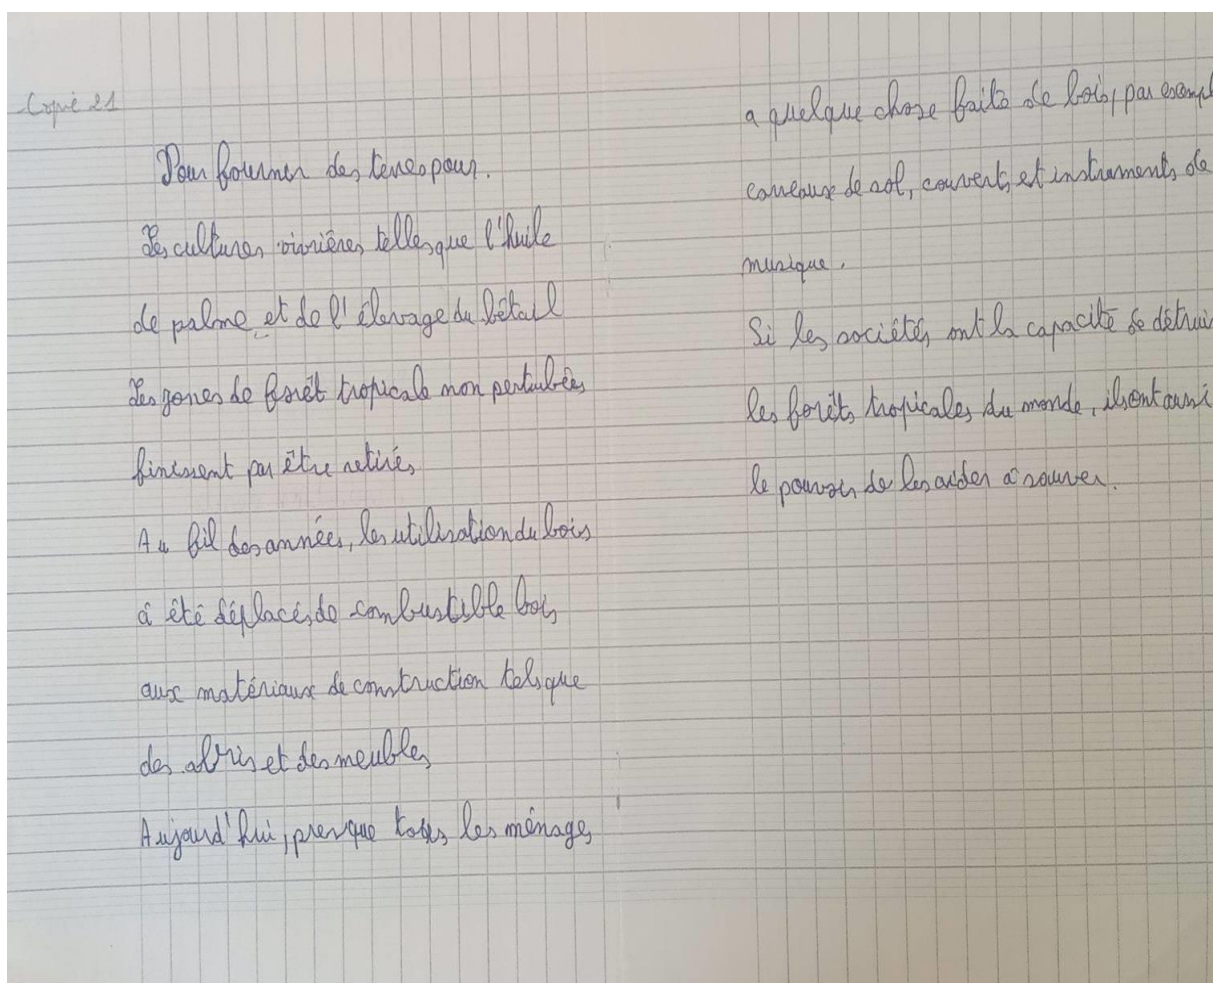 Copie 21
Pour fournir des terres pour.
Les cultures vivrières telles que l'huile
de palme et de l'élevage du bétail
Les zones de forêt tropicale non perturbées
finissent par être retirés
Au fil des années, les utilisation du bois
à été déplacés de combustible bois
aux matériaux de construction tels que
des abris et des meubles
Aujourd'hui, presque totes les ménages
a quelque chose faite de bois, par exempl
carreaux de sol, couverts et instruments de
musique.
Si les sociétés ont la capacité de détrui
les forêts tropicales du monde, ils ont aussi
le pouvoir de les aider à sauver.